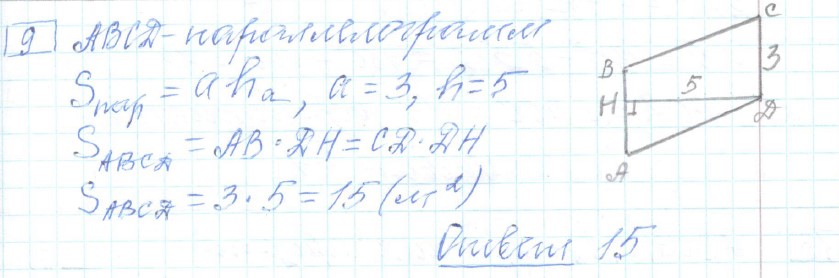 9 ABCD - параллелограмм
Sпар = a hₐ, a = 3, h = 5
S_ABCD = AB · DH = CD · DH
S_ABCD = 3 · 5 = 15 (м²)
Ответ 15
C
B
3
H
5
D
A